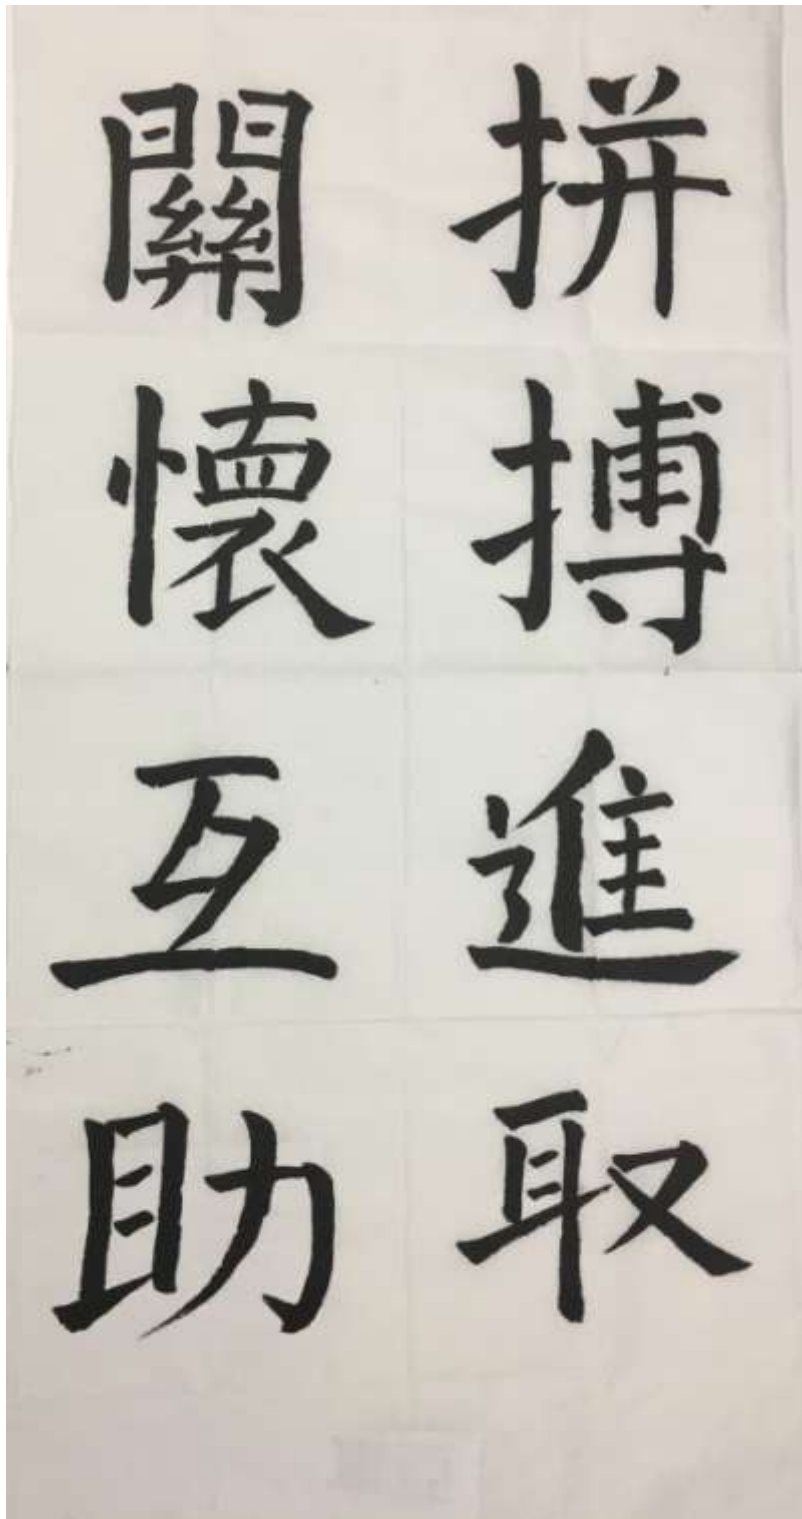 拼搏進取
關懷互助